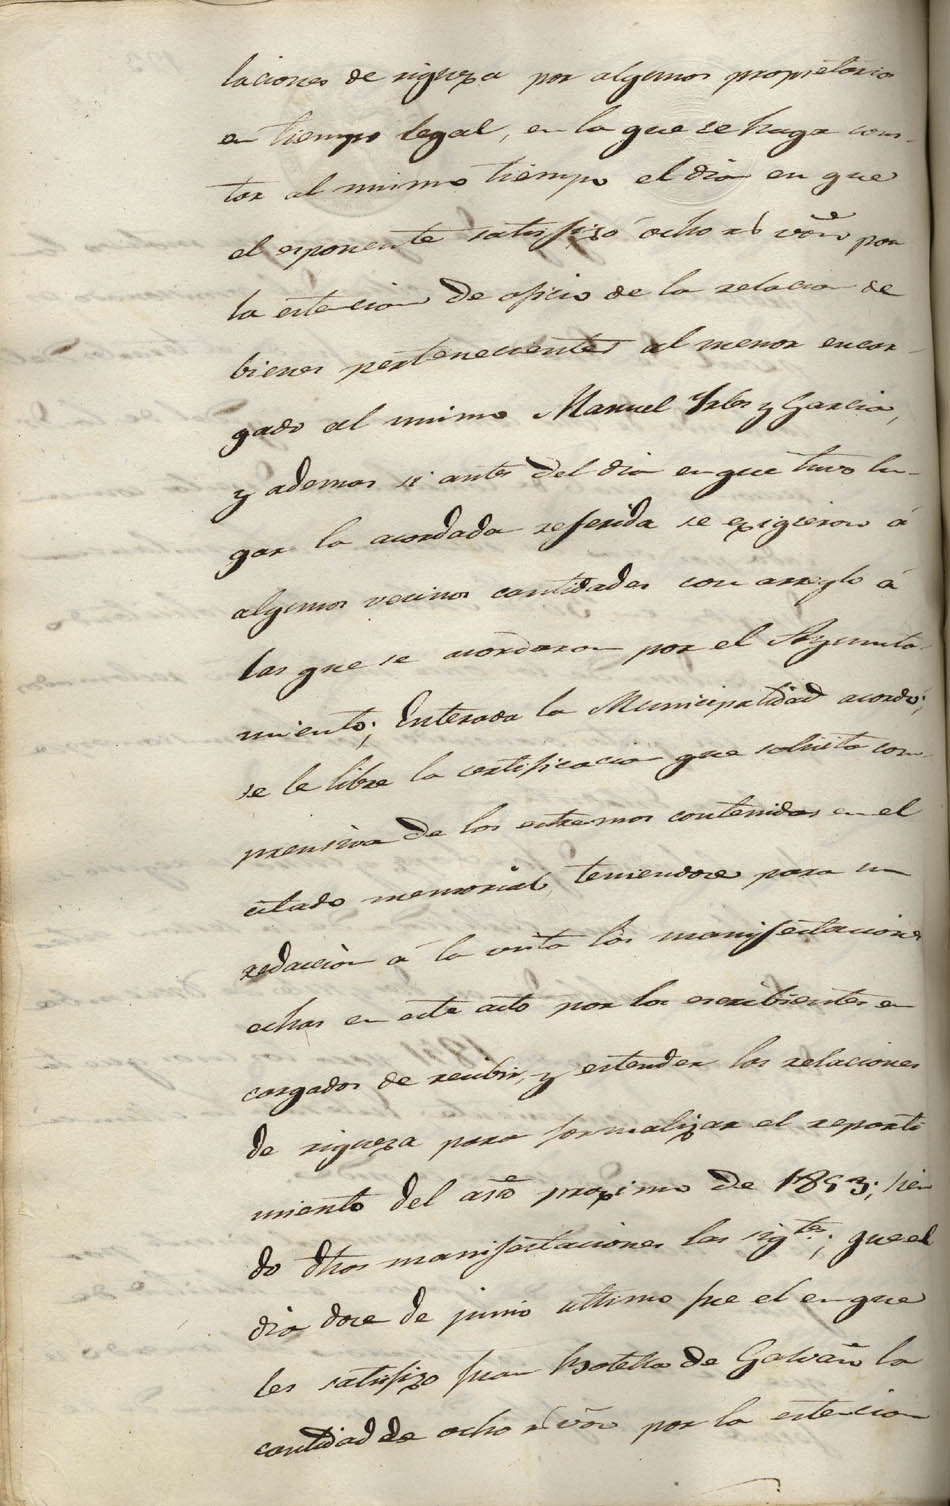 laciones de riqueza por algunos propietarios
en tiempo legal, en la que se haga cons-
tar al mismo tiempo el dia en que
el esponente satisfizó ocho rs von por
la estencion de oficio de la relacion de
bienes pertenecientes al menor encar-
gado al mismo Manuel Yrles y Garcia,
y ademas si antes del dia en que tuvo lu-
gar la acordada referida se exigieron á
algunos vecinos cantidades con arreglo á
las que se acordaron por el Ayunta-
miento; Enterada la Municipalidad acordó;
se le libre la certificacion que solicita com-
prensiva de los estremos contenidos en el
citado memorial, teniendose para su
redaccion á la vista las manifestaciones
echas en este acto por los escribientes en
cargados de recibir, y estender las relaciones
de riqueza para formalizar el reparti
miento del año proximo de 1853; sien
do dhas manifestaciones las sigtes; que el
dia doce de junio ultimo fue el en que
les satisfizo Juan Botella de Galvañ la
cantidad de ocho rs von por la estencion